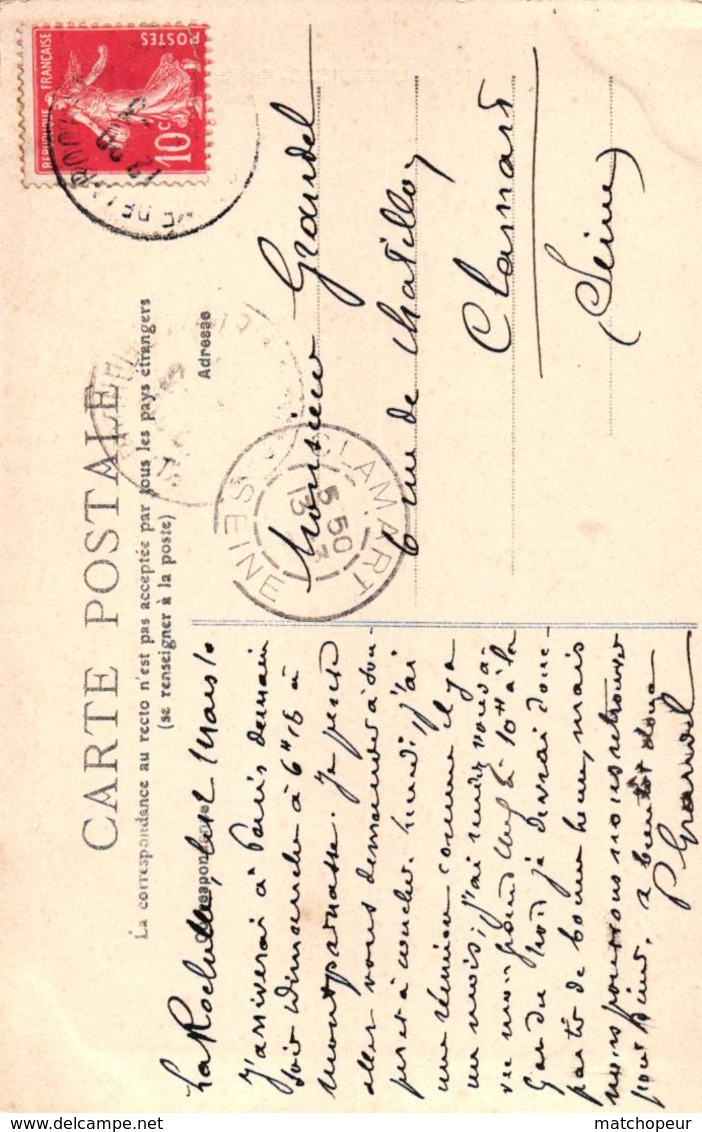 CARTE POSTALE
La correspondance au recto n'est pas acceptée par tous les pays étrangers
(se renseigner à la poste)
Correspondance
Adresse
REPUBLIQUE FRANÇAISE
POSTES
10c
CLAMART
5 50
13 3
SEINE
La Rochelle, Mars
J'arriverai à Paris demain
soir dimanche à 6H15 à
Montparnasse. Je pense
aller vous demander à dîner
et à coucher. Lundi, j'ai
une réunion comme il y a
un mois, j'ai rendez vous a-
vec mon grand à 10H à la
Gare du Nord je devrai donc
partir de bonne heure, mais
nous pourrons nous retrouver
pour dîner. a bientôt donc
P Grandel
Monsieur Grandel
6 rue de Chatillon
Clamart
(Seine)
matchopeur